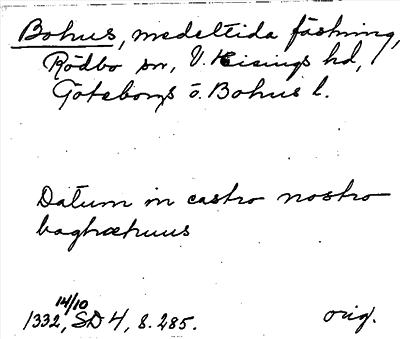 Bohus, medeltida fästning,
Rödbo sn, V. Hisings hd,
Göteborgs o. Bohus l.
Datum in castro nostro
baghæhuus
14/10
1332, SD 4, s. 285. orig.